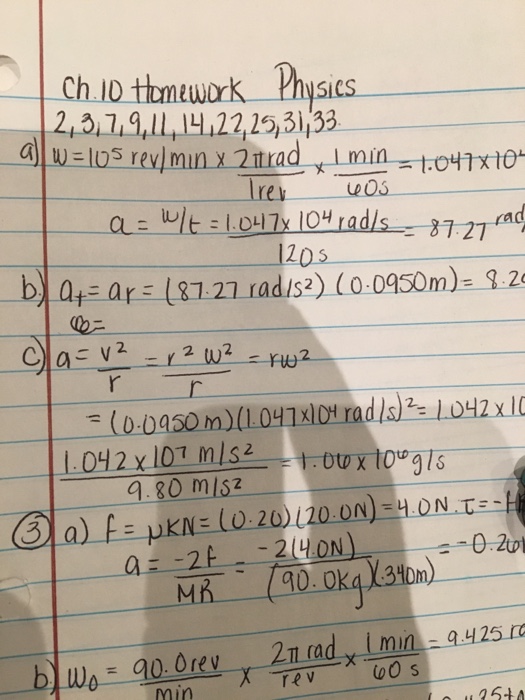 Ch.10 Homework Physics
2,3,7,9,11,14,22,25,31,33.
a) w = 105 rev/min x 2π rad / 1 rev x 1 min / 60s = 1.047 x 10
a = w/t = 1.047 x 104 rad/s / 120s = 87.27 rad
b.) at = ar = (87.27 rad/s²) (0.0950m) = 8.2
c) a = v² / r = r² w² / r = rw²
= (0.0950m)(1.047x104 rad/s)² = 1.042 x 10
1.042 x 107 m/s² / 9.80 m/s² = 1.06 x 106 g/s
③ a) f = μKN = (0.20)(20.0N) = 4.0N. τ = -f
a = -2f / MR = -2(4.0N) / (90.0kg)(.340m) = -0.261
b) W₀ = 90.0rev / min x 2π rad / rev x 1 min / 60 s = 9.425 ra